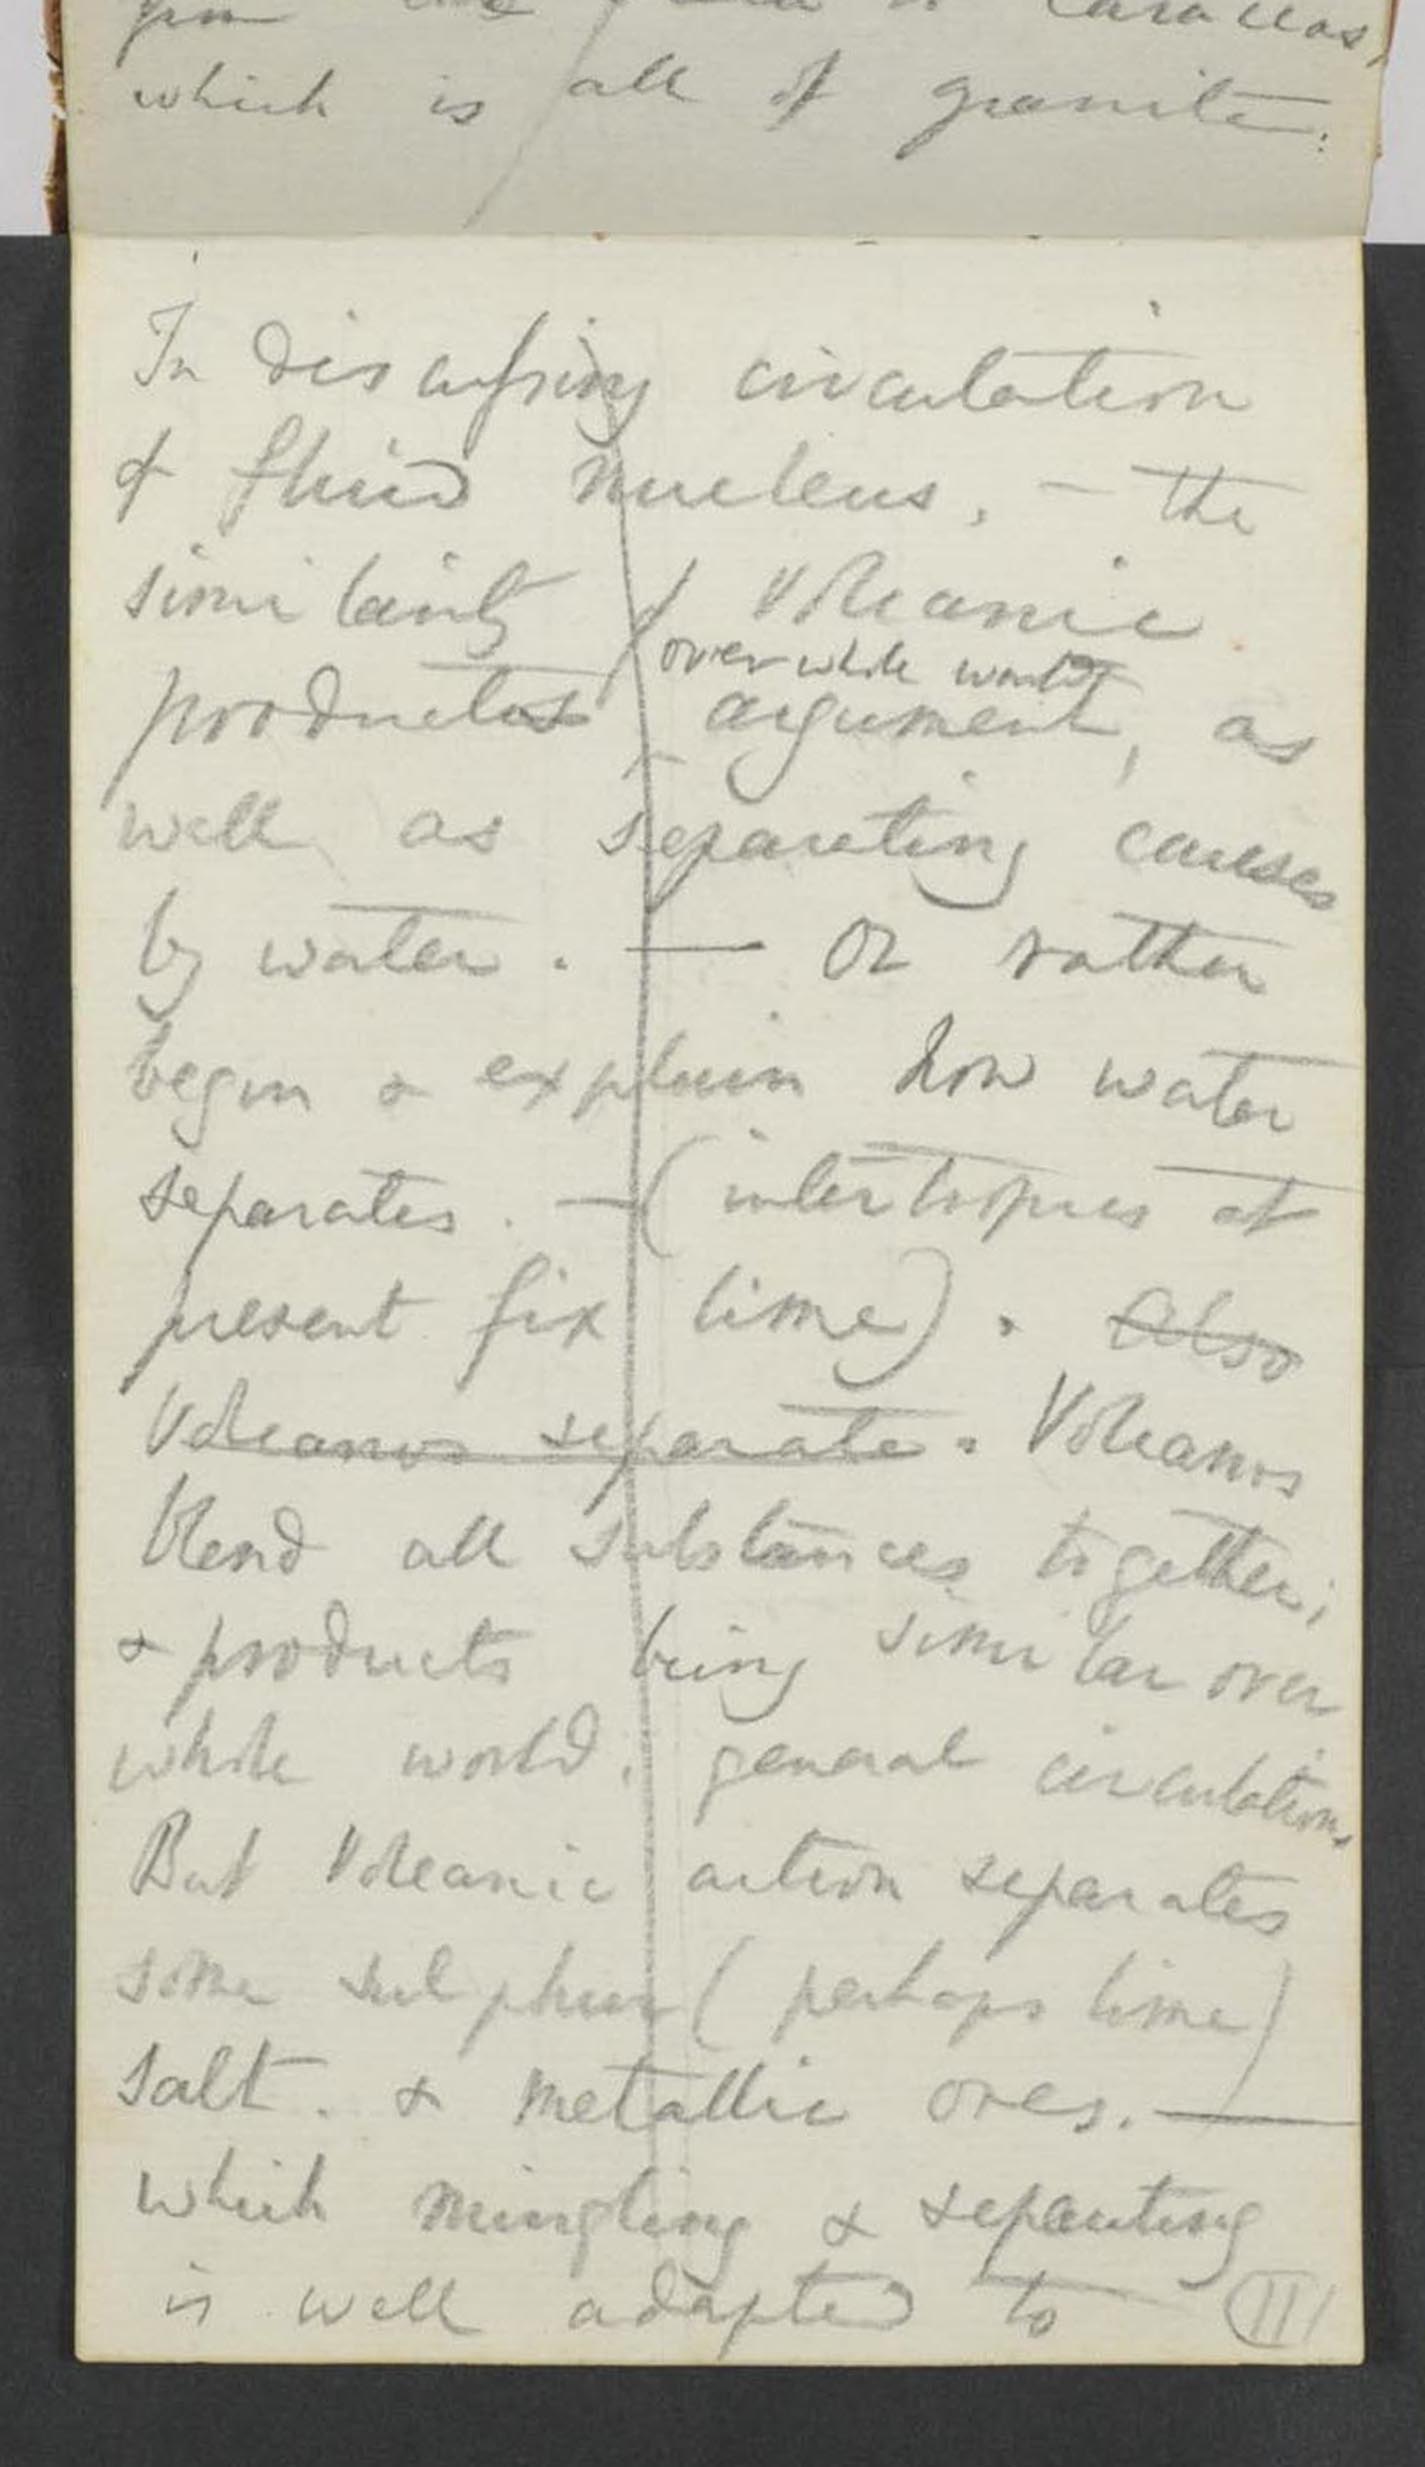 which is all of granite:
In discussing circulation
of fluid nucleus, — the
similarity of Volcanic
over whole world
products argument, as
well as separating causes
by water. — Or rather
begin & explain how water
separates. — (intertropics at
present fix lime). Also
Volcanos separate. Volcanos
blend all substances together;
& products being similar over
whole world, general circulation.
But Volcanic action separates
some sulphur (perhaps lime)
salt. & metallic ores. —
which mingling & separating
is well adapted to